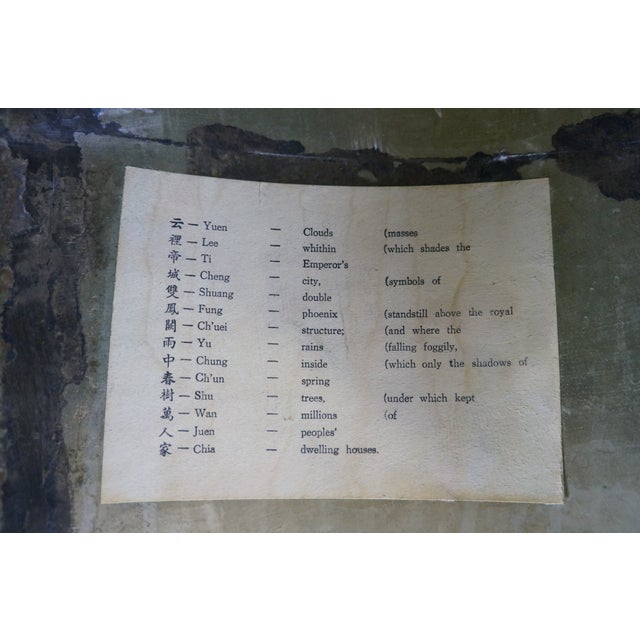 云 — Yuen — Clouds (masses
裡 — Lee — whithin (which shades the
帝 — Ti — Emperor's
城 — Cheng — city, (symbols of
雙 — Shuang — double
鳳 — Fung — phoenix (standstill above the royal
闕 — Ch'uei — structure; (and where the
雨 — Yu — rains (falling foggily,
中 — Chung — inside (which only the shadows of
春 — Ch'un — spring
樹 — Shu — trees, (under which kept
萬 — Wan — millions (of
人 — Juen — peoples'
家 — Chia — dwelling houses.